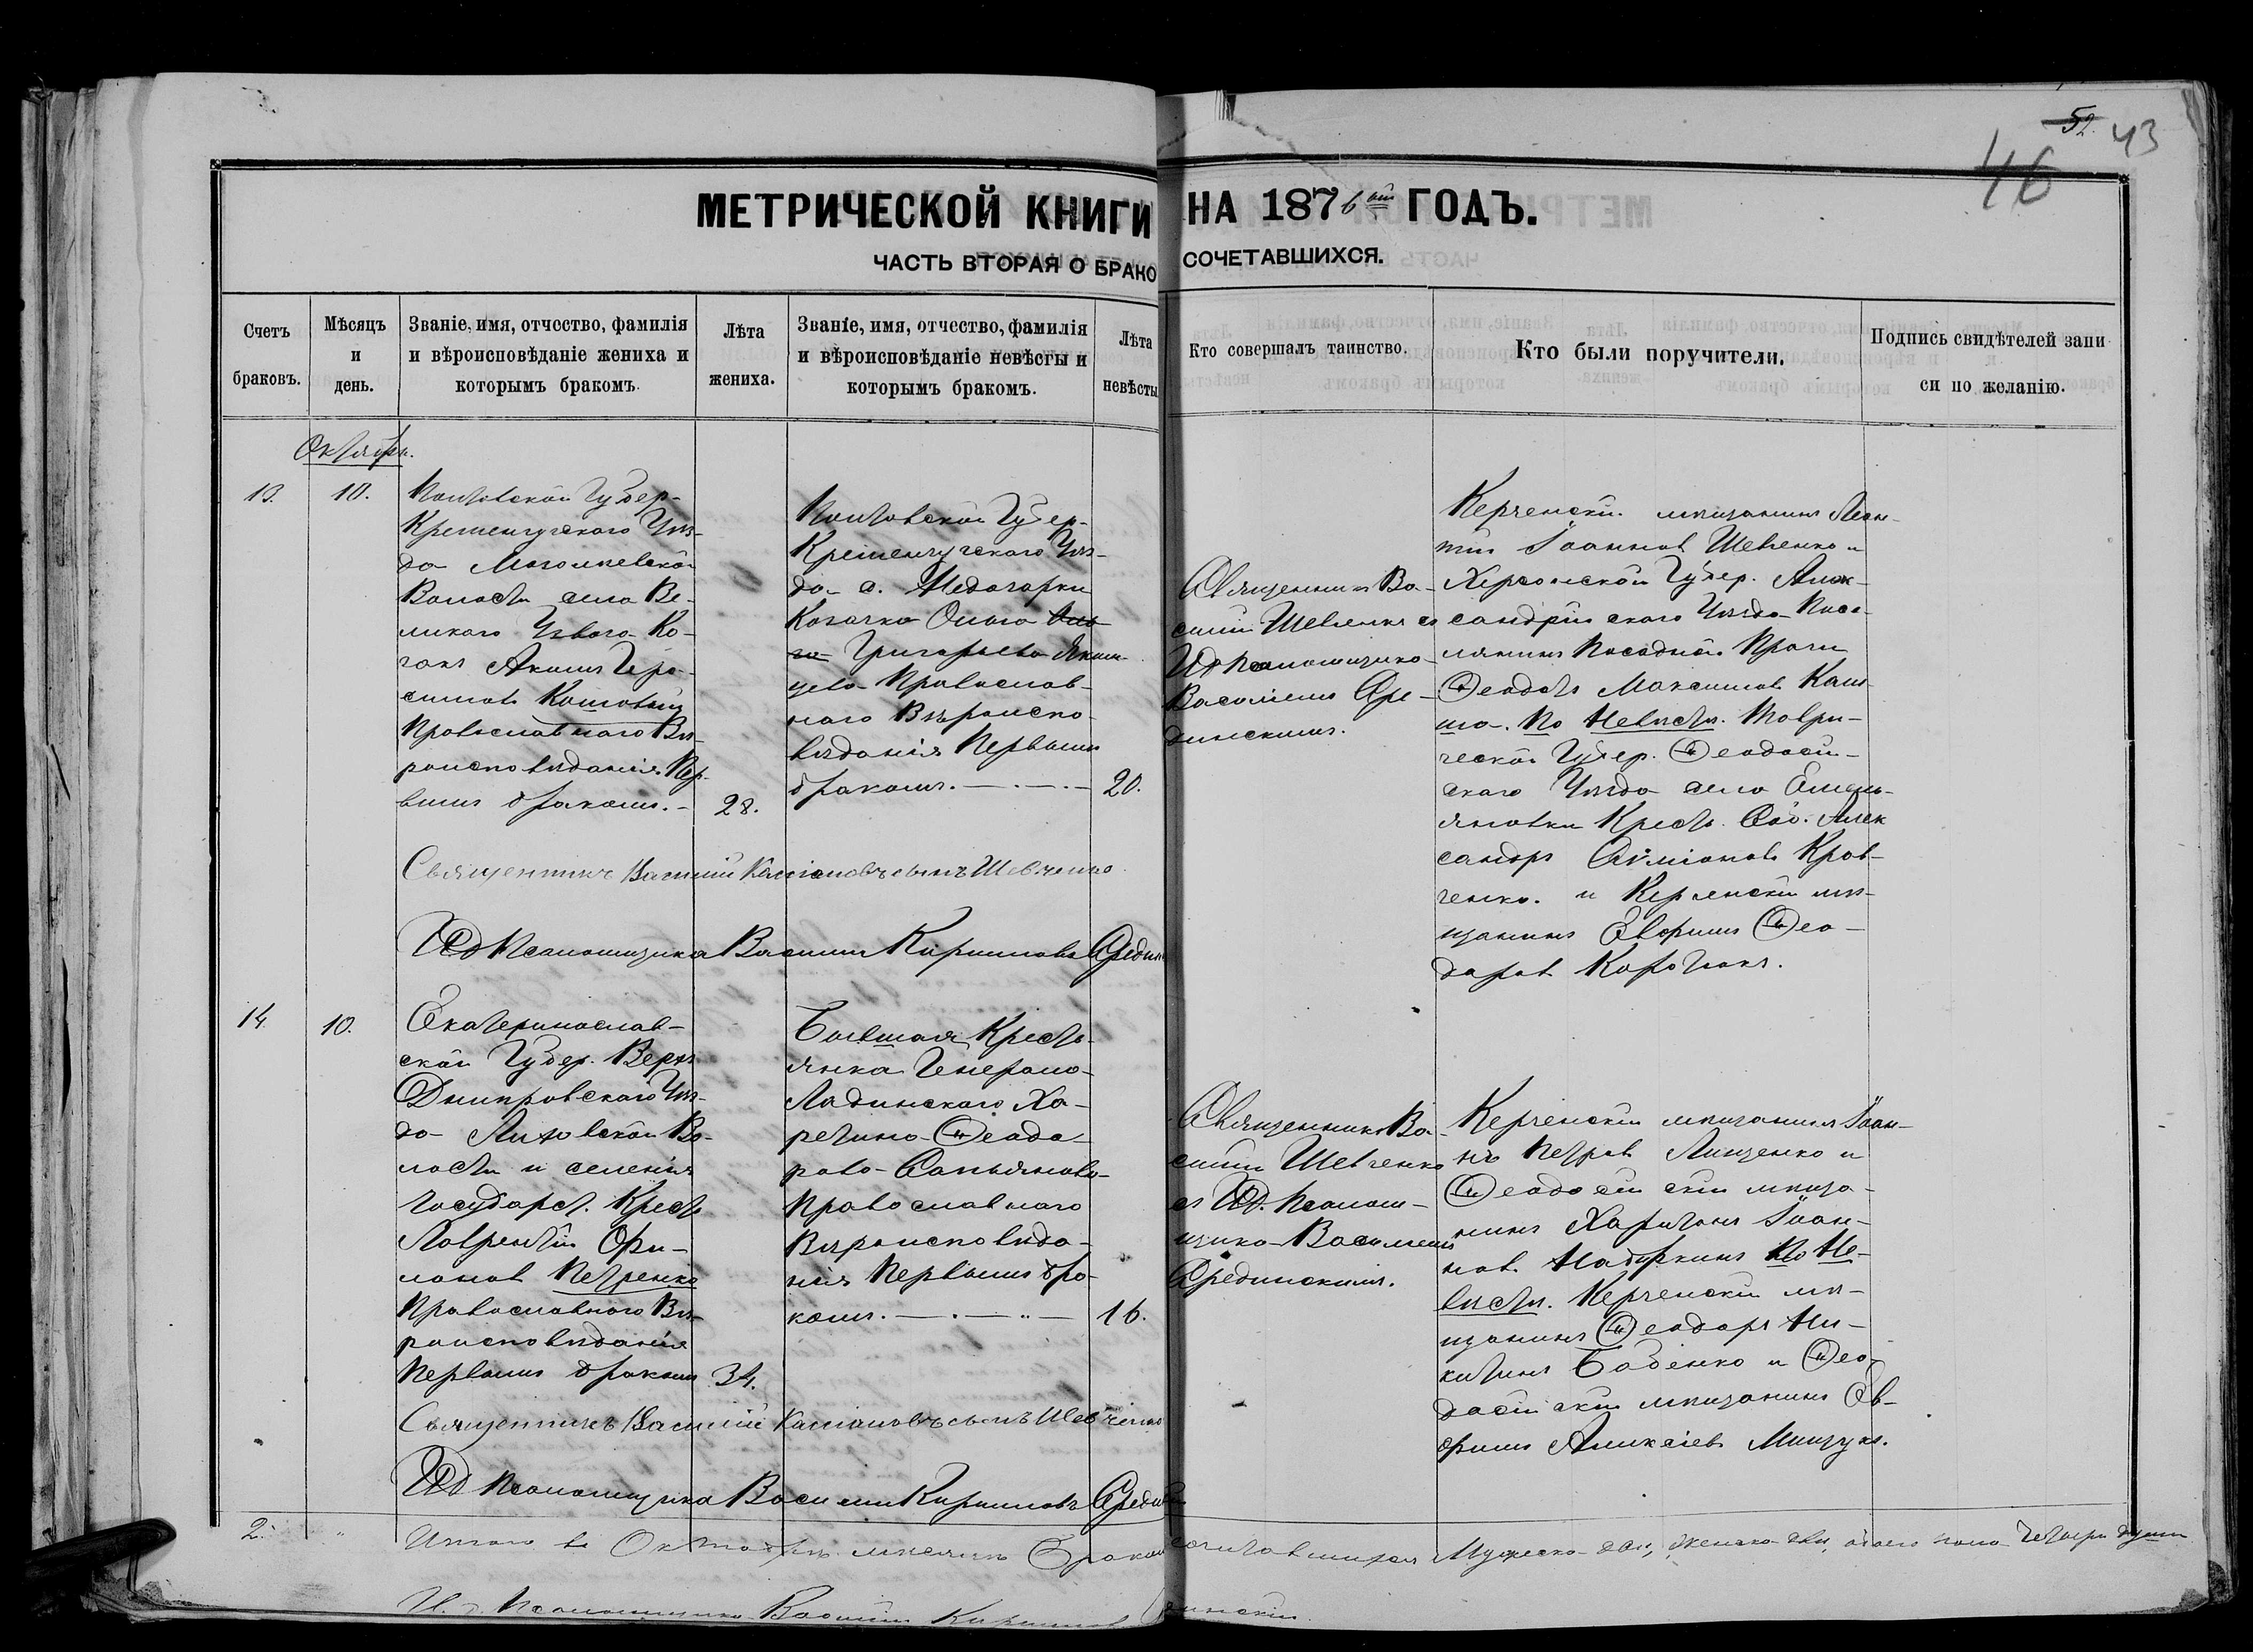 52. 43
46
МЕТРИЧЕСКОЙ КНИГИ НА 1876ой ГОДЪ.
ЧАСТЬ ВТОРАЯ О БРАКОСОЧЕТАВШИХСЯ.
Счетъ браковъ.
Мѣсяцъ и день.
Званіе, имя, отчество, фамилія
и вѣроисповѣданіе жениха и
которымъ бракомъ.
Лѣта жениха.
Званіе, имя, отчество, фамилія
и вѣроисповѣданіе невѣсты и
которымъ бракомъ.
Лѣта невѣсты
Кто совершалъ таинство.
Кто были поручители.
Подпись свидѣтелей запи
си по желанію.
Октябрь.
13.
10.
Полтавской Губер-
Кременчугскаго Уѣз-
да
Волости села Ве-
ликаго Ко-
закъ Акимъ Гера-
симовъ
Православнаго Вѣ-
роисповѣданія Пер-
вымъ бракомъ.-
28.
Полтавской Губер-
Кременчугскаго Уѣз-
да с. Недогарки
Козачка Ольга
Григорьева
Православ-
наго Вѣроиспо-
вѣданія Первымъ
бракомъ.
20.
Священникъ Ва-
силій Шевченко съ
Ид Псаломщика
Василіемъ Сре-
динскимъ.
Керченскій мѣщанинъ Леон-
тій Іоанновъ Шевченко и
Херсонской Губер. Алек-
сандрійскаго Уѣзда Посе-
лянинъ Посадной Праги
Ѳеодотъ Максимовъ Каш-
ша. По Невѣстѣ. Таври-
ческой Губер. Ѳеодосій-
скаго Уѣзда села Емель-
яновки Крест. Соб. Алек
сандръ Кров-
ченко. и Керченскій мѣ-
щанинъ Евфимъ Ѳео-
доровъ Коротокъ.
Священникъ Василій Кассіановъ сынъ Шевченко
ИД Псаломщика Василій Кирилловъ Средин
14.
10.
Екатеринослав-
ской Губер. Верхъ
Днѣпровскаго Уѣз-
да Лиховской Во-
лости и селенія
Государст. Крест
Лаврентій Фи-
лоновъ Петренко
Православнаго Вѣ-
роисповѣданія
Первымъ бракомъ
34.
Бывшая Кресть-
янка Генерала
Ладинскаго Ха-
ритина Ѳеодо-
рова
Православнаго
Вѣроисповѣда-
нія Первымъ бра-
комъ.
16.
Священникъ Ва-
силій Шевченко
съ ИД. Псалом-
щика Василіемъ
Срединскимъ.
Керченскій мѣщанинъ Іоан-
нъ Петровъ Лищенко и
Ѳеодосійскій мѣща-
нинъ Харитонъ Іоан-
новъ По Не-
вѣстѣ. Керченскій мѣ-
щанинъ Ѳеодоръ Ни-
китинъ Бабенко и Ѳео-
досійскій мѣщанинъ Ев-
фимъ Алексіевъ Мищукъ.
Священникъ Василій Кассіановъ сынъ Шевченко
ИД Псаломщика Василій Кирилловъ Средин
2.
Итого въ Октябрѣ мѣсяцѣ Бракомъ сочетавшихся Мужеска два, женска два, обоего пола четыре души
И. д. Псаломщика Василій Кирилловъ